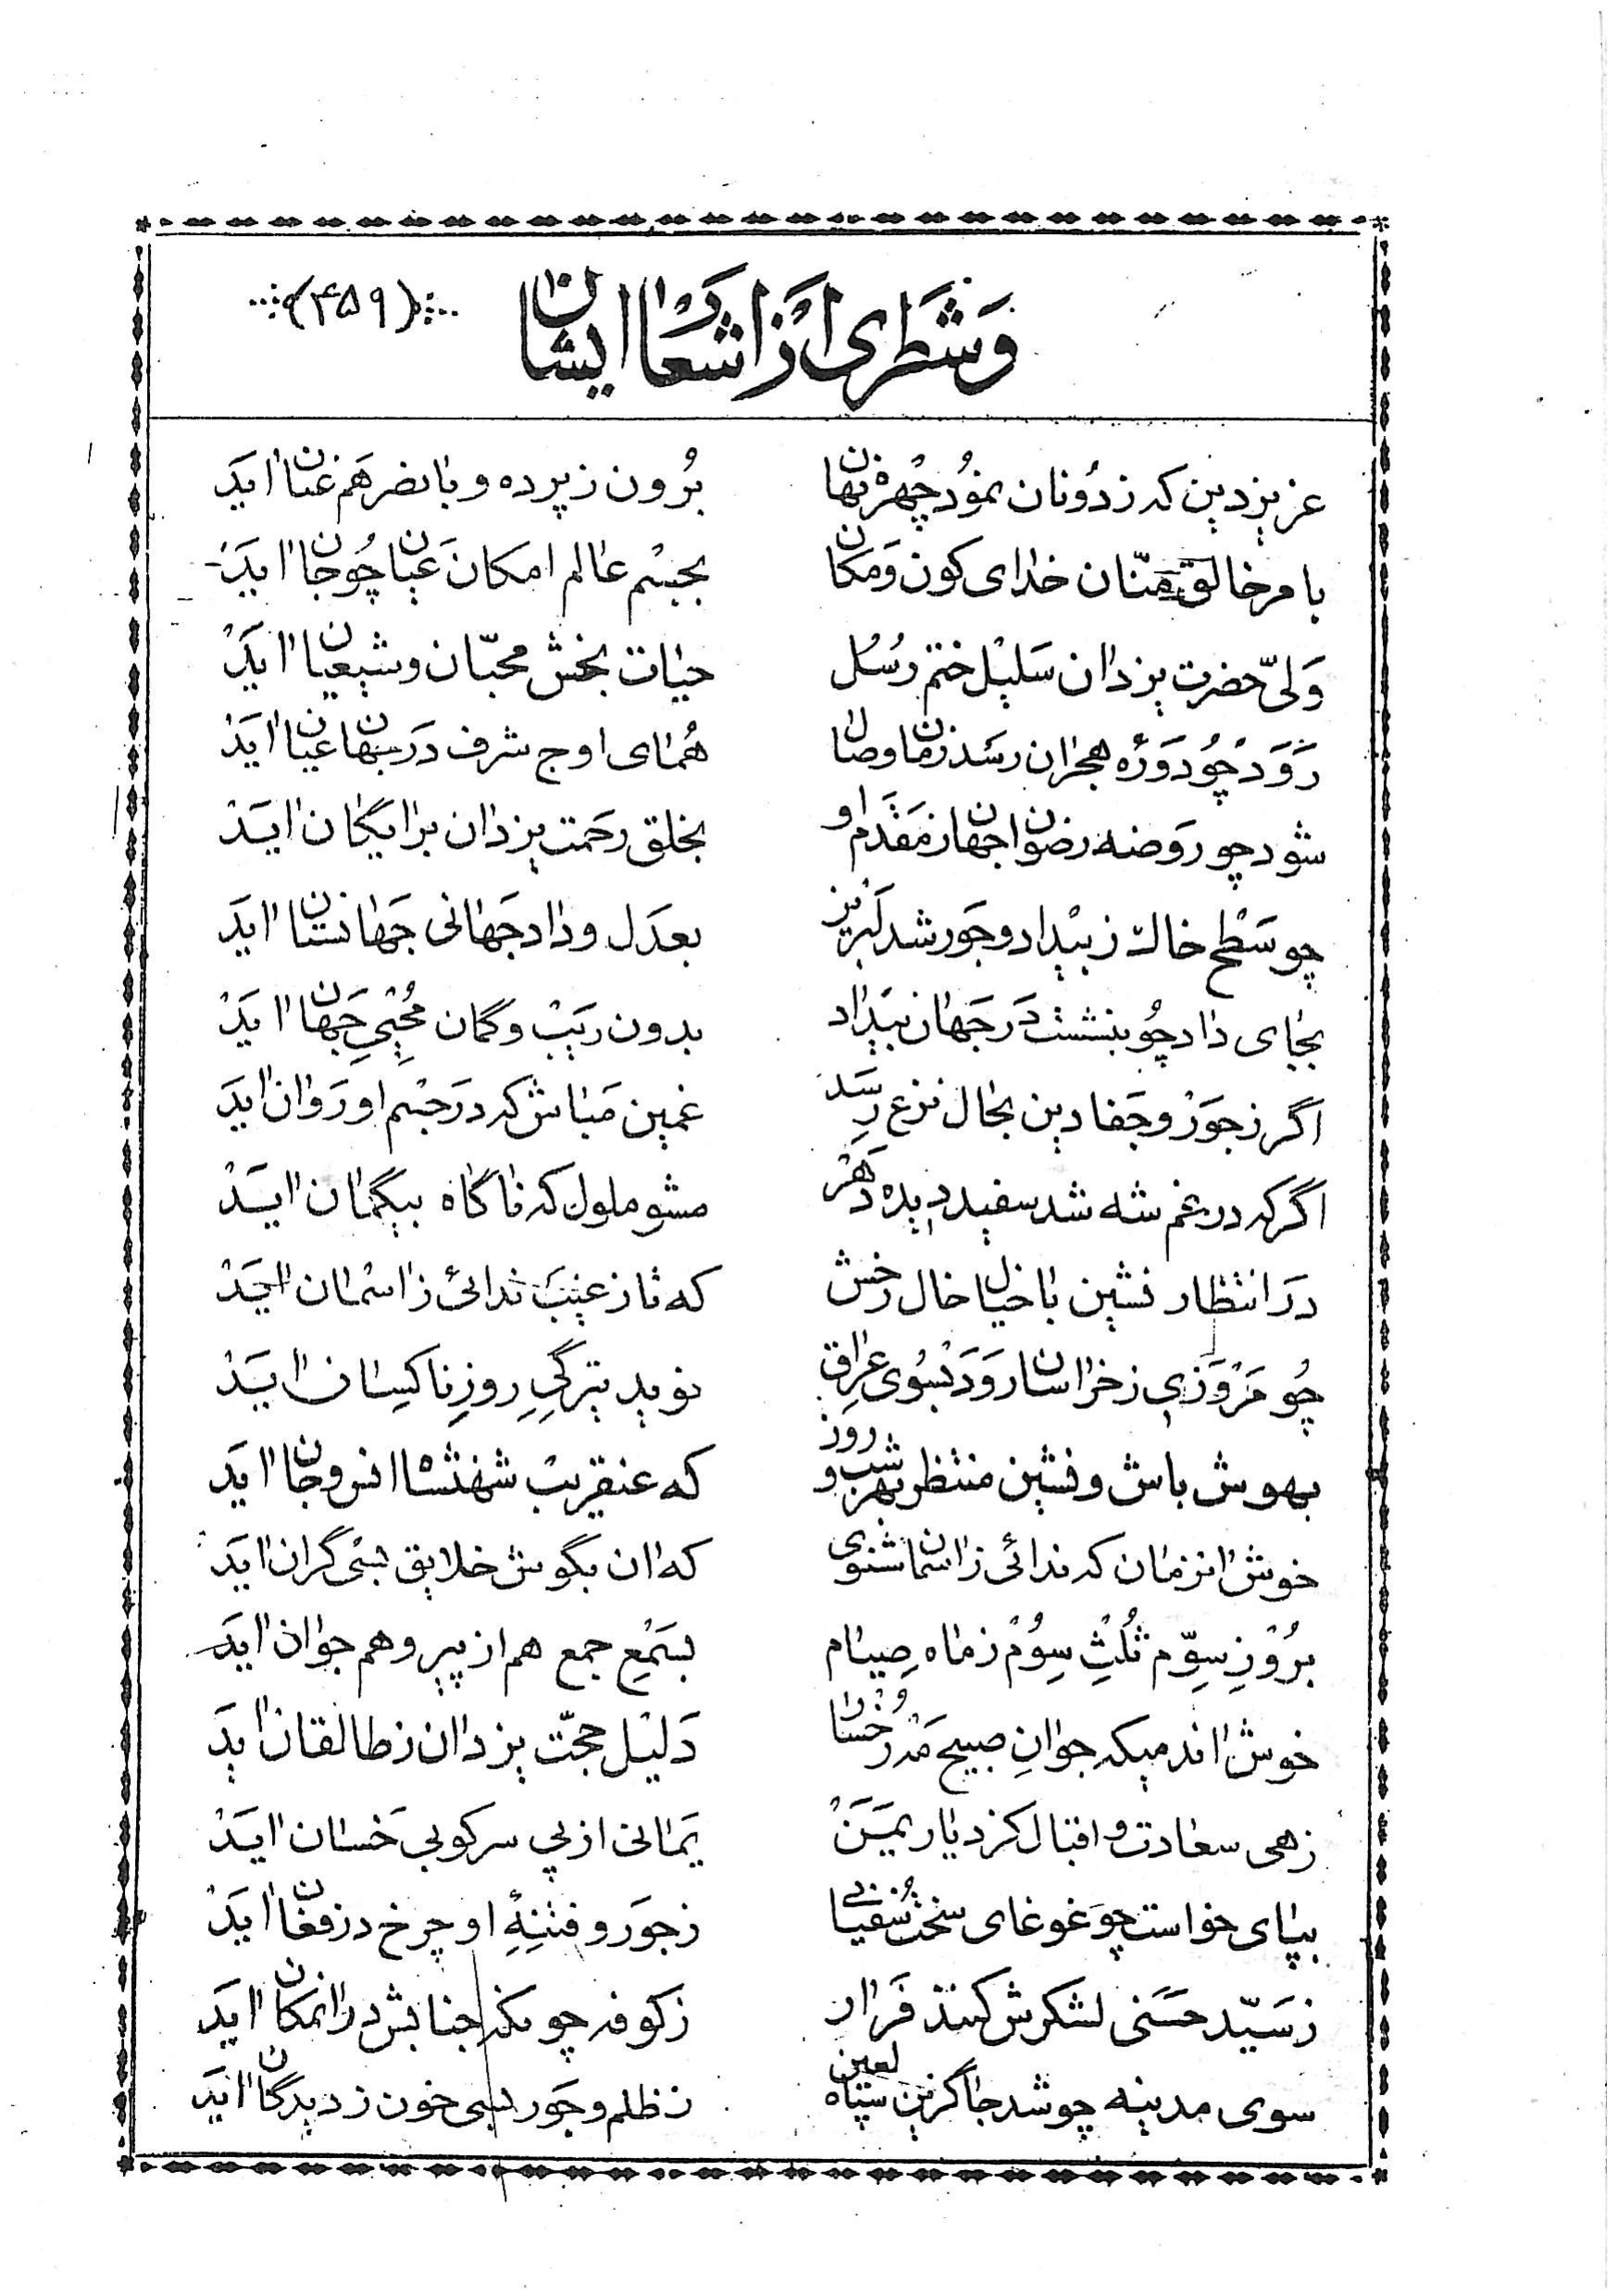 وشطری از اشعار ایشان (۴۵۹)
عزیز دین که ز دونان نمود چهره نهان برون ز پرده و با نصر هم عنان آید
بامر خالق منّان خدای کون و مکان بجسم عالم امکان عیان چو جان آید
ولیّ حضرت یزدان سلیل ختم رسل حیات بخش محبّان و شیعیان آید
رود چو دوره هجران رسد زمان وصال همای اوج شرف در جهان عیان آید
شود چو روضه رضوان جهان ز مقدم او بخلق رحمت یزدان برایگان آید
چو سطح خاک ز بیداد و جور شد لبریز بعدل و داد جهانی جهانستان آید
بجای داد چو بنشست در جهان بیداد بدون ریب و گمان محیی جهان آید
اگر ز جور و جفا دین بحال نزع رسد غمین مباش که در جسم او روان آید
اگر که در غم شه شد سفید دیده دهر مشو ملول که ناگاه بیگمان آید
در انتظار نشین با خیال خال رخش که تا ز غیب ندائی ز آسمان آید
چو مروزی ز خراسان رود بسوی عراق نوید تیرگیِ روزِ ناکسان آید
بهوش باش و نشین منتظر بهر شب و روز که عنقریب شهنشاه انس و جان آید
خوش آنزمان که ندائی ز آسمان شنوی که آن بگوش خلایق بسی گران آید
بروزِ سوّم ثلثِ سوم ز ماه صیام بسمع جمع هم از پیر و هم جوان آید
خوش آندمیکه جوانِ صبیح مه رخسار دلیل حجّت یزدان ز طالقان آید
زهی سعادت و اقبال کز دیار یمن یمانی از پی سرکوبی خسان آید
بپای خواست چو غوغای سخت سفیانی ز جور و فتنهٔ او چرخ در فغان آید
ز سیّد حسنی لشکرش کنند فرار ز کوفه چونکه جنابش در آنمکان آید
سوی مدینه چو شد جاگزین سپاه لعین ز ظلم و جور بسی خون ز دیدگان آید